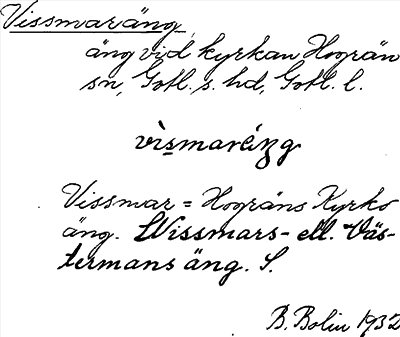 Vissmaräng,
äng vid kyrkan Hogrän
sn, Gotl. s. hd, Gotl. l.
Vissmar = Hogräns Kyrko
äng. Wissmars- ell. Väs-
termans äng. S.
B. Bolin 1932